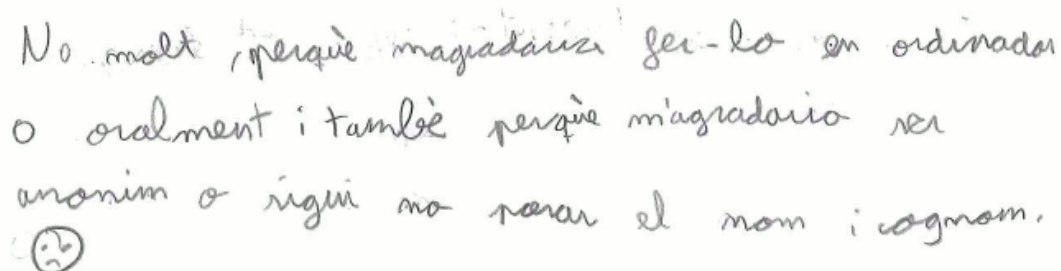 No molt, perquè magradaria fer-lo en ordinador
o oralment i també perquè m'agradaria ser
anonim o sigui no posar el nom i cognom.